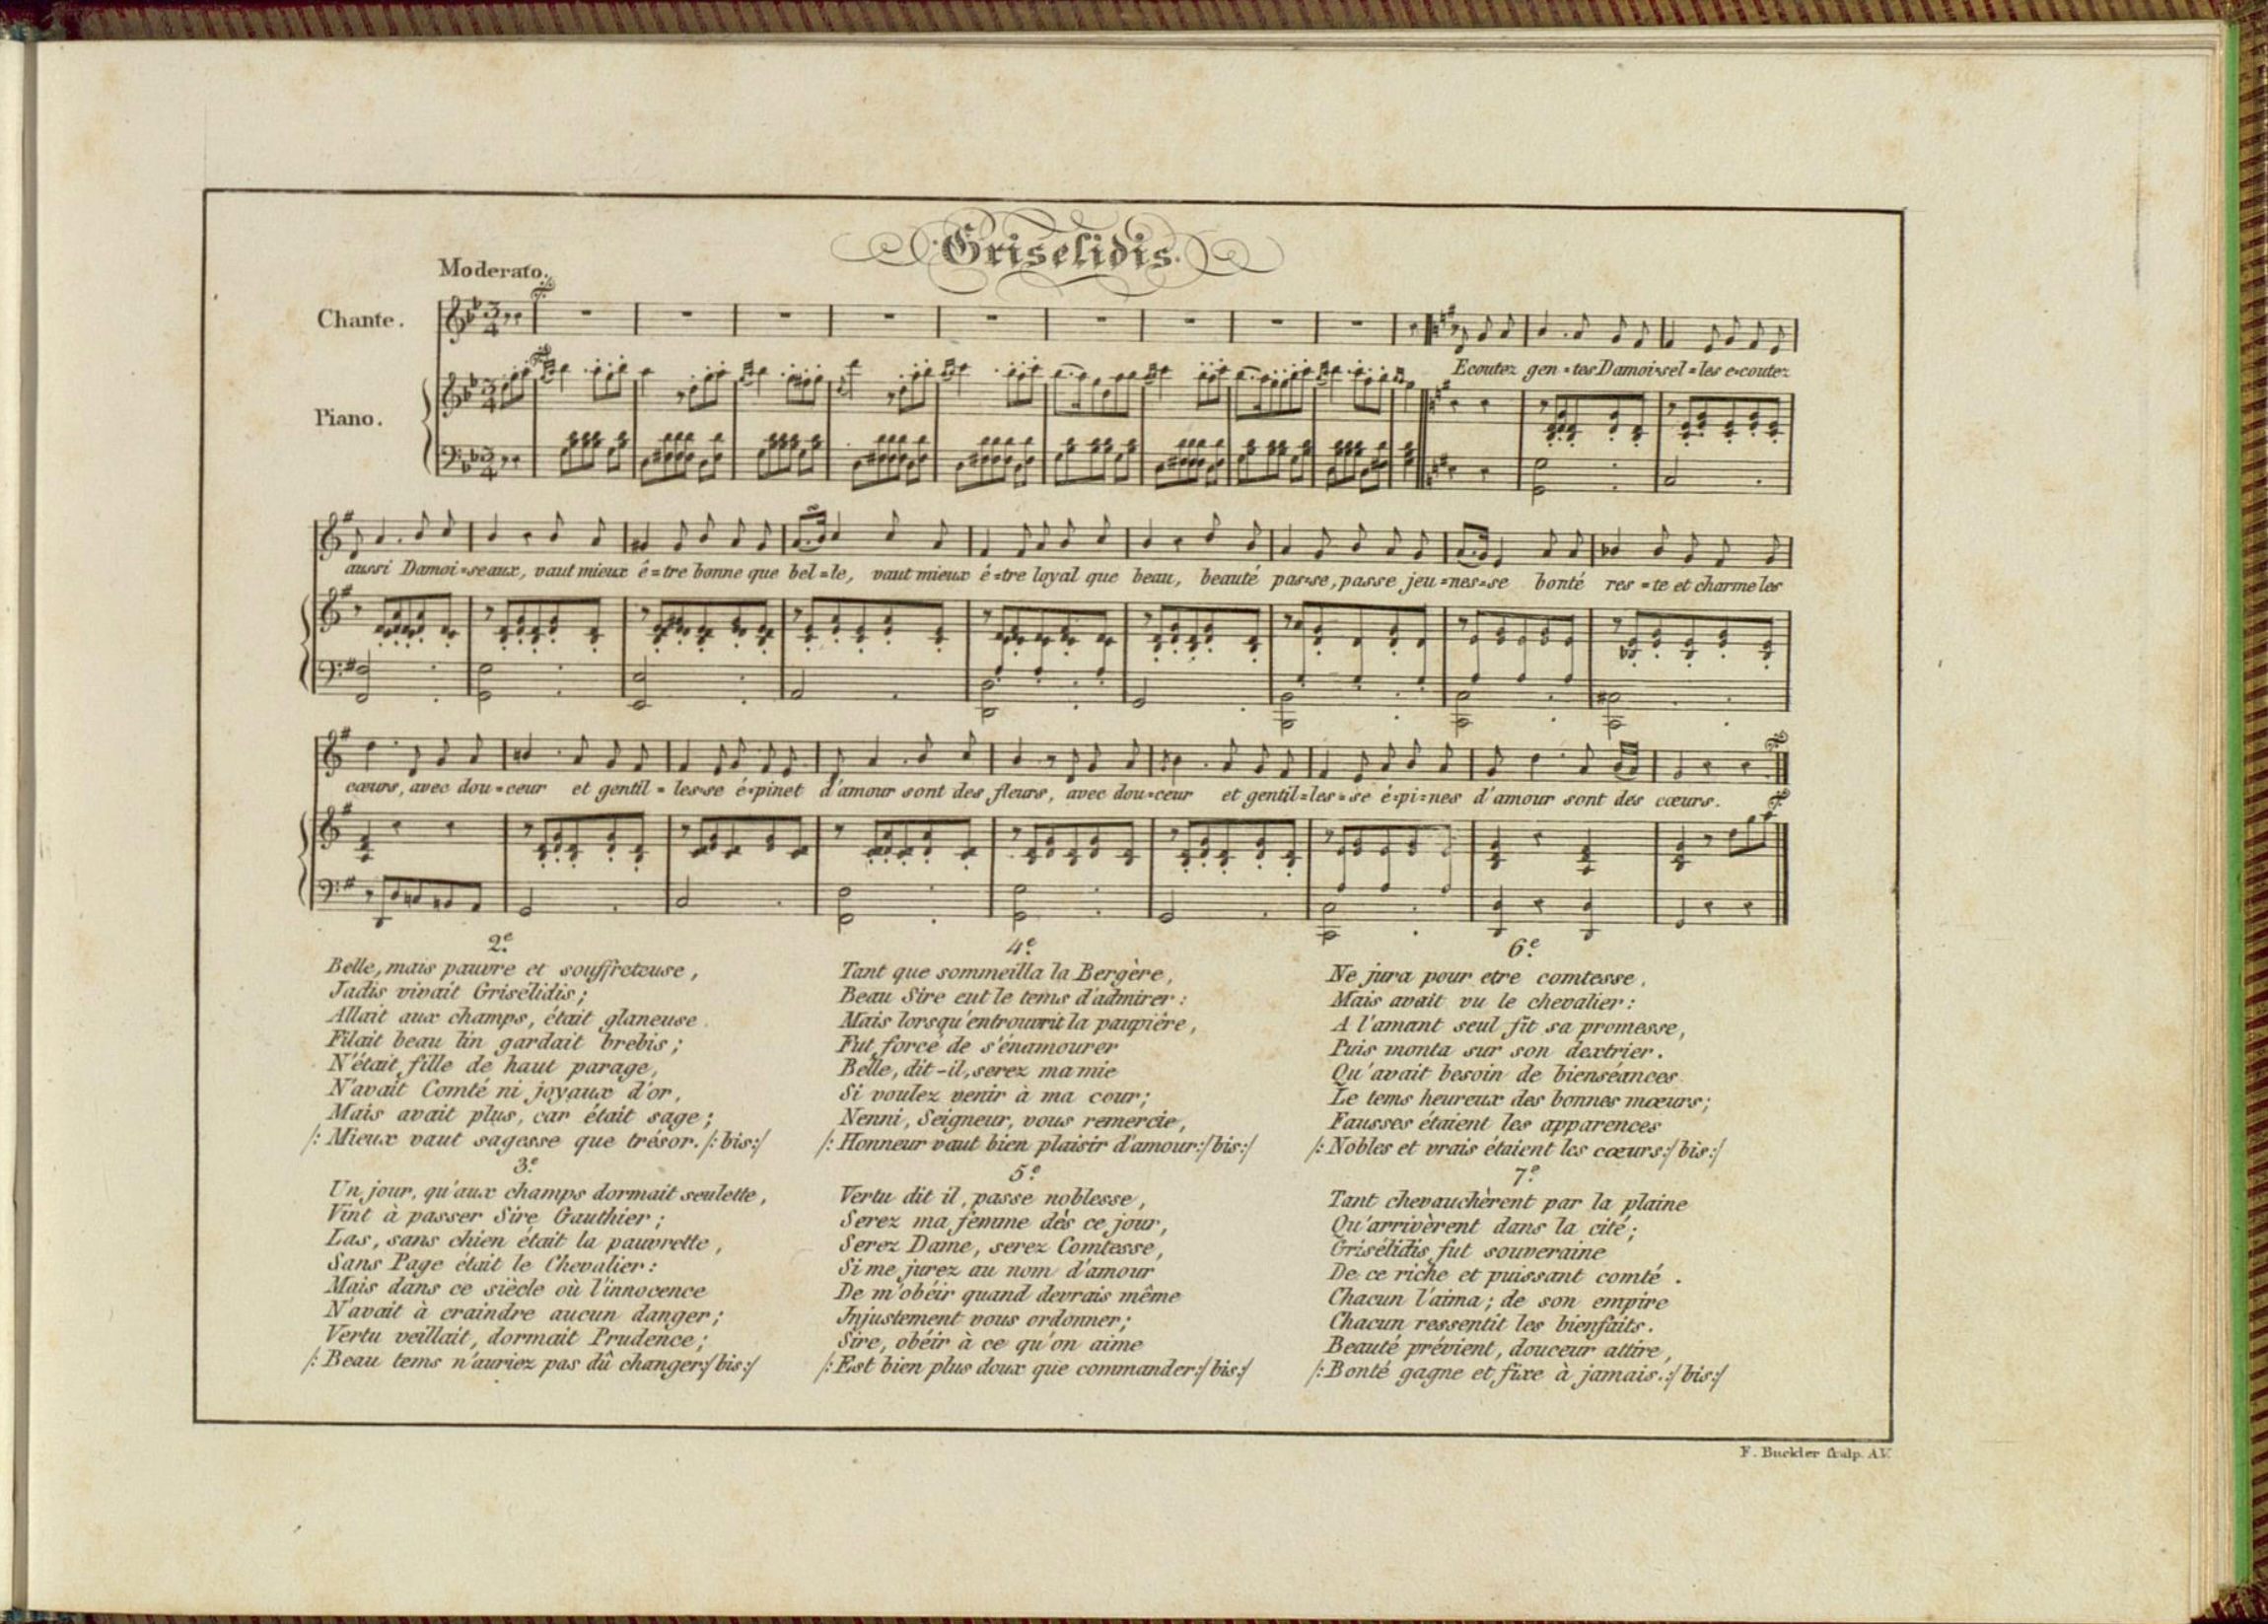 Griselidis.
Moderato.
Chante.
Piano.
Ecoutez gen=tes Damoi=sel=les e=coutez
aussi Damoi=seaux, vaut mieux é=tre bonne que bel=le, vaut mieux é=tre loyal que beau, beauté pas=se, passe jeu=nes=se bonté res=te et charme les
cœurs, avec dou=ceur et gentil=les=se é=pinet d'amour sont des fleurs, avec dou=ceur et gentil=les=se é=pi=nes d'amour sont des cœurs.
2.e
Belle, mais pauvre et souffreteuse,
Jadis vivait Grisélidis;
Allait aux champs, était glaneuse
Filait beau lin gardait brebis;
N'était fille de haut parage,
N'avait Comté ni joyaux d'or,
Mais avait plus, car était sage;
/: Mieux vaut sagesse que trésor. /: bis:/
3.e
Un jour, qu'aux champs dormait seulette,
Vint à passer Sire Gauthier;
Las, sans chien était la pauvrette,
Sans Page était le Chevalier:
Mais dans ce siècle où l'innocence
N'avait à craindre aucun danger;
Vertu veillait, dormait Prudence;
/: Beau tems n'auriez pas dû changer:/ bis:/
4.e
Tant que sommeilla la Bergère,
Beau Sire eut le tems d'admirer:
Mais lorsqu'entrouvrit la paupière,
Fut forcé de s'énamourer
Belle, dit-il, serez ma mie
Si voulez venir à ma cour;
Nenni, Seigneur, vous remercie,
/: Honneur vaut bien plaisir d'amour:/ bis:/
5.e
Vertu dit il, passe noblesse,
Serez ma femme dès ce jour,
Serez Dame, serez Comtesse,
Si me jurez au nom d'amour
De m'obéir quand devrais même
Injustement vous ordonner;
Sire, obéir à ce qu'on aime
/: Est bien plus doux que commander:/ bis:/
6.e
Ne jura pour etre comtesse,
Mais avait vu le chevalier:
A l'amant seul fit sa promesse,
Puis monta sur son dextrier.
Qu'avait besoin de bienséances
Le tems heureux des bonnes mœurs;
Fausses étaient les apparences
/: Nobles et vrais étaient les cœurs:/ bis:/
7.e
Tant chevauchèrent par la plaine
Qu'arrivèrent dans la cité;
Grisélidis fut souveraine
De ce riche et puissant comté.
Chacun l'aima; de son empire
Chacun ressentit les bienfaits.
Beauté prévient, douceur attire,
/: Bonté gagne et fixe à jamais.:/ bis:/
F. Buckler sculp. A.V.